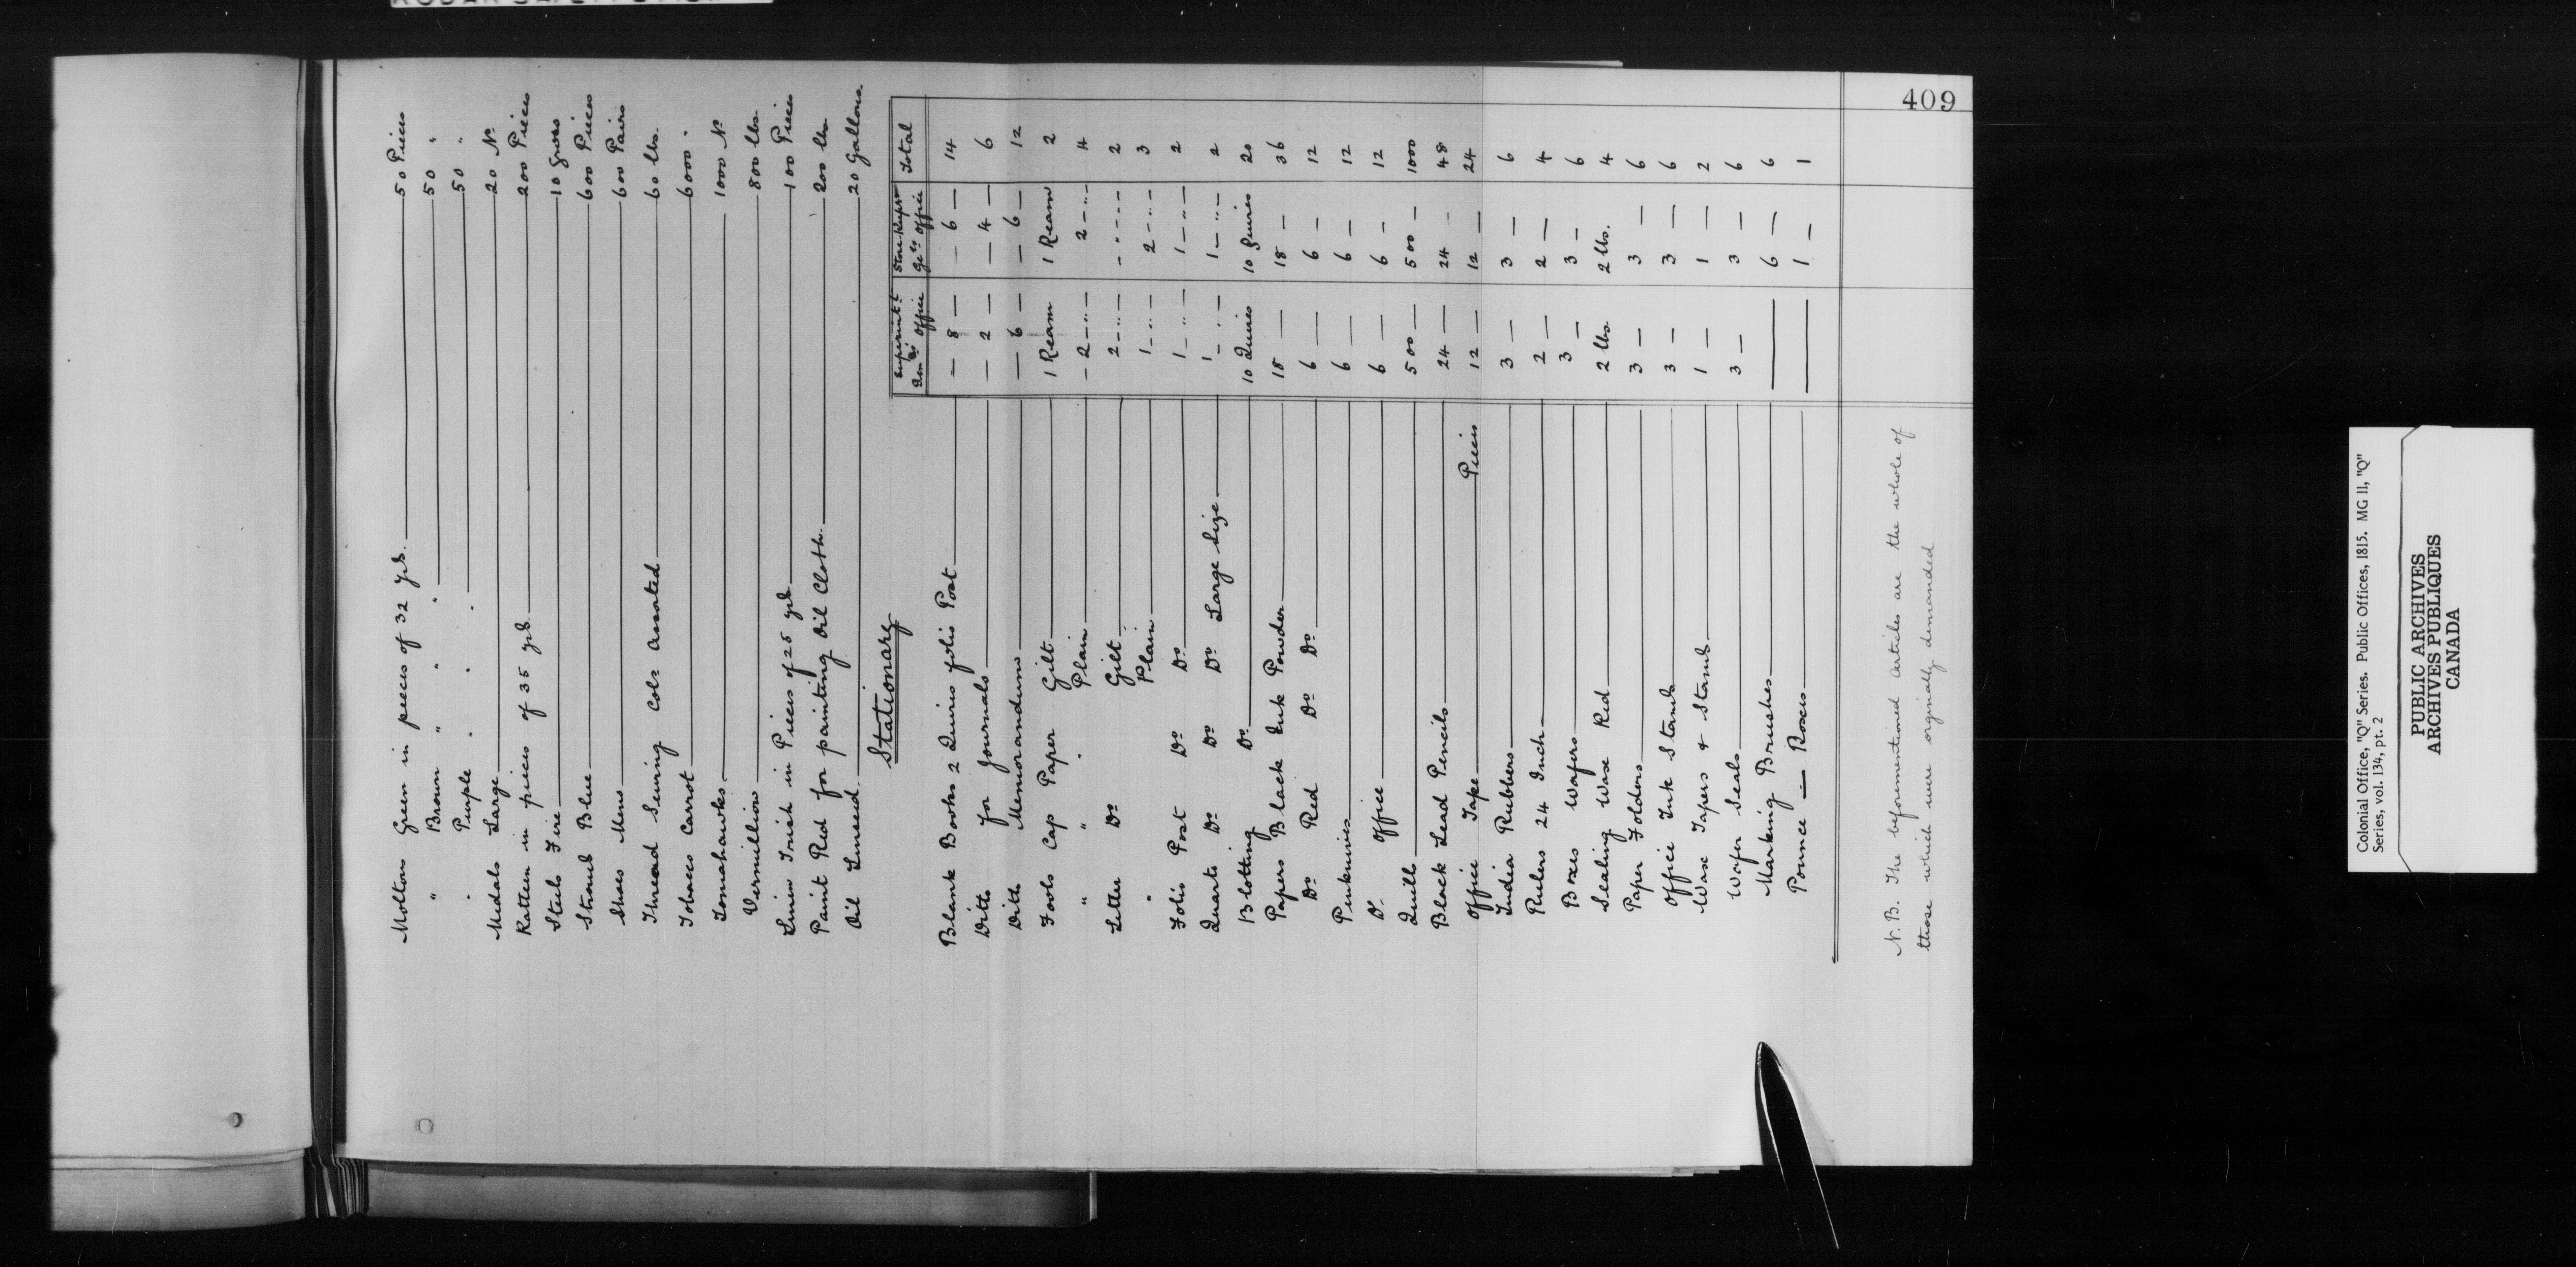 409
Moltons Green in pieces of 32 yds. 50 Pieces
" Brown " " " 50 "
" Purple " " " 50 "
Medals Large 20 No
Ratteen in pieces of 35 yds. 200 Pieces
Steels Fire 10 Gross
Strouds Blue 600 Pieces
Shoes Mens 600 Pairs
Thread Sewing Cols assorted 60 lbs.
Tobacco Carrot 6000 "
Tomahawks 1000 No
Vermillion 800 lbs.
Linen Irish in Pieces of 25 yds. 100 Pieces
Paint Red for painting Oil Cloth. 200 lbs.
Oil Linseed. 20 Gallons.
Stationary
Superintt Genls Office Store-Keepr Gels Office Total
Blank Books 2 Quires folio Post — 8 — — 6 — 14
Ditto for Journals — 2 — — 4 — 6
Ditto Memorandums — 6 — — 6 — 12
Fools Cap Paper Gilt 1 Ream 1 Ream 2
" " " Plain — 2 — " — 2 — " — 4
Letter Do Gilt 2 — " — - " - - 2
" Plain 1 — " — 2 — " — 3
Folio Post Do Do 1 — " — 1 — " — 2
Quarto Do Do Do Large Size 1 — " — 1 — " — 2
Blotting Do 10 Quires 10 Quires 20
Papers Black Ink Powder 18 — 18 — 36
Do Red Do Do 6 — 6 — 12
Penknives 6 — 6 — 12
Do Office 6 — 6 — 12
Quills 500 — 500 — 1000
Black Lead Pencils 24 — 24 — 48
Office Tape Pieces 12 — 12 — 24
India Rubbers 3 — 3 — 6
Rulers 24 Inch 2 — 2 — 4
Boxes Wafers 3 — 3 — 6
Sealing Wax Red 2 lbs. 2 lbs. 4
Paper Folders 3 — 3 — 6
Office Ink Stands 3 — 3 — 6
Wax Tapers & Stands 1 — 1 — 2
Wafer Seals 3 — 3 — 6
Marking Brushes — 6 — 6
Pounce — Boxes — 1 — 1
N.B. The beforementioned articles are the whole of
those which were orginally demanded
Colonial Office, "Q" Series. Public Offices, 1815. MG 11, "Q"
Series, vol. 134, pt. 2
PUBLIC ARCHIVES
ARCHIVES PUBLIQUES
CANADA